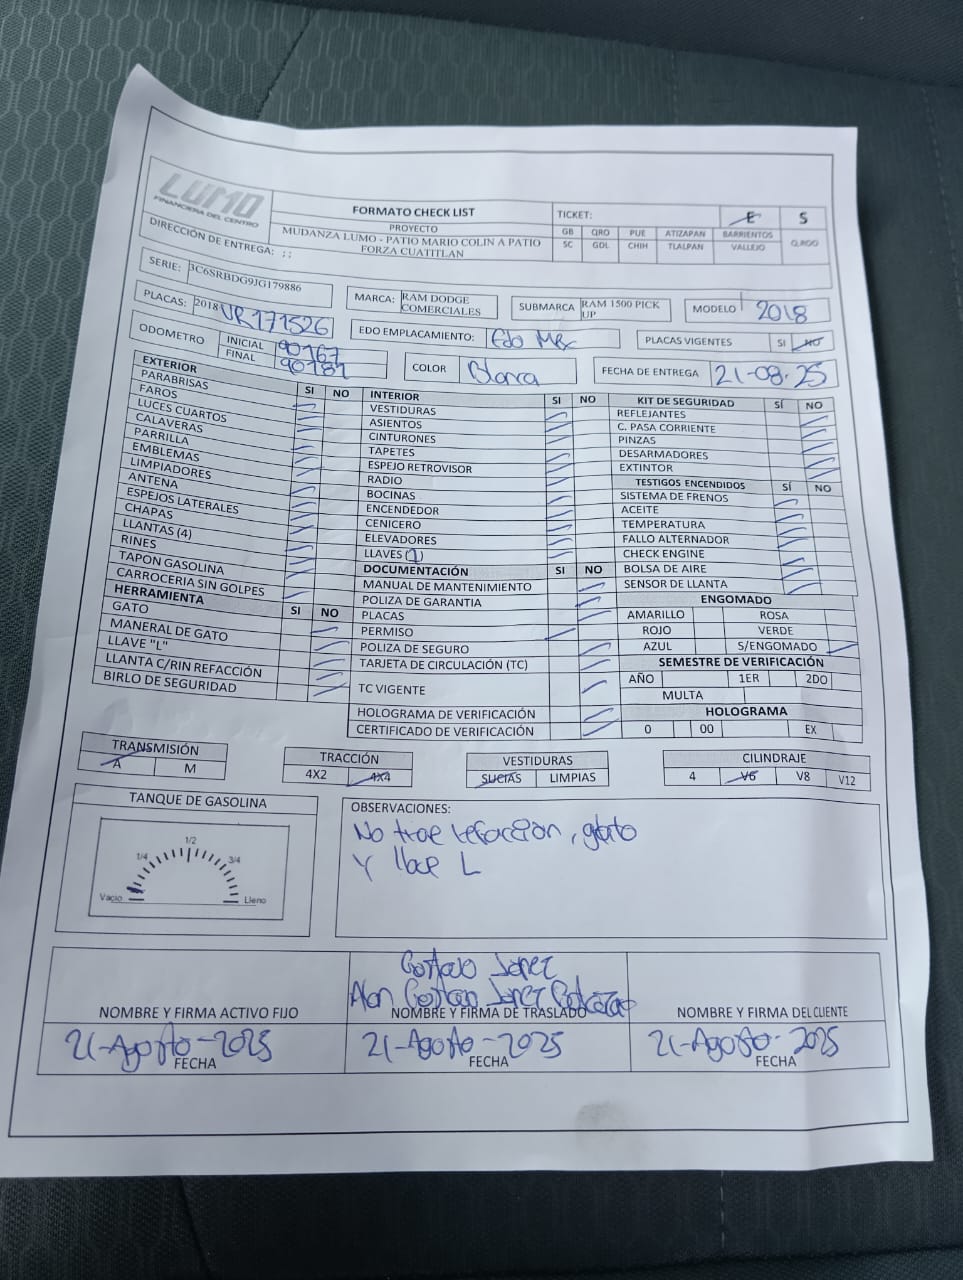 LUMO
FINANCIERA DEL CENTRO
FORMATO CHECK LIST
PROYECTO
MUDANZA LUMO - PATIO MARIO COLIN A PATIO
FORZA CUATITLAN
TICKET:
E S
GB QRO PUE ATIZAPAN BARRIENTOS
SC GDL CHIH TLALPAN VALLEJO
DIRECCIÓN DE ENTREGA: ; ;
SERIE: 3C6SRBDG9JG179886
MARCA: RAM DODGE COMERCIALES
SUBMARCA RAM 1500 PICK UP
MODELO 2018
PLACAS: 2018 UR171526
EDO EMPLACAMIENTO: Edo Mex
PLACAS VIGENTES SI NO
ODOMETRO INICIAL 90167
FINAL 90181
COLOR Blanca
FECHA DE ENTREGA 21-08-25
EXTERIOR SI NO
PARABRISAS
FAROS
LUCES CUARTOS
CALAVERAS
PARRILLA
EMBLEMAS
LIMPIADORES
ANTENA
ESPEJOS LATERALES
CHAPAS
LLANTAS (4)
RINES
TAPON GASOLINA
CARROCERIA SIN GOLPES
HERRAMIENTA SI NO
GATO
MANERAL DE GATO
LLAVE "L"
LLANTA C/RIN REFACCIÓN
BIRLO DE SEGURIDAD
INTERIOR SI NO
VESTIDURAS
ASIENTOS
CINTURONES
TAPETES
ESPEJO RETROVISOR
RADIO
BOCINAS
ENCENDEDOR
CENICERO
ELEVADORES
LLAVES (1)
DOCUMENTACIÓN SI NO
MANUAL DE MANTENIMIENTO
POLIZA DE GARANTIA
PLACAS
PERMISO
POLIZA DE SEGURO
TARJETA DE CIRCULACIÓN (TC)
TC VIGENTE
HOLOGRAMA DE VERIFICACIÓN
CERTIFICADO DE VERIFICACIÓN
KIT DE SEGURIDAD SÍ NO
REFLEJANTES
C. PASA CORRIENTE
PINZAS
DESARMADORES
EXTINTOR
TESTIGOS ENCENDIDOS SÍ NO
SISTEMA DE FRENOS
ACEITE
TEMPERATURA
FALLO ALTERNADOR
CHECK ENGINE
BOLSA DE AIRE
SENSOR DE LLANTA
ENGOMADO
AMARILLO ROSA
ROJO VERDE
AZUL S/ENGOMADO
SEMESTRE DE VERIFICACIÓN
AÑO 1ER 2DO
MULTA
HOLOGRAMA
0 00 EX
TRANSMISIÓN
A M
TRACCIÓN
4X2 4X4
VESTIDURAS
SUCIAS LIMPIAS
CILINDRAJE
4 V6 V8 V12
TANQUE DE GASOLINA
Vacio 1/4 1/2 3/4 Lleno
OBSERVACIONES:
No trae refaccion, gato
Y llave L
Gustavo
Alan Gustavo
NOMBRE Y FIRMA ACTIVO FIJO
NOMBRE Y FIRMA DE TRASLADO
NOMBRE Y FIRMA DEL CLIENTE
21-Agosto-2025
21-Agosto-2025
21-Agosto-2025
FECHA
FECHA
FECHA